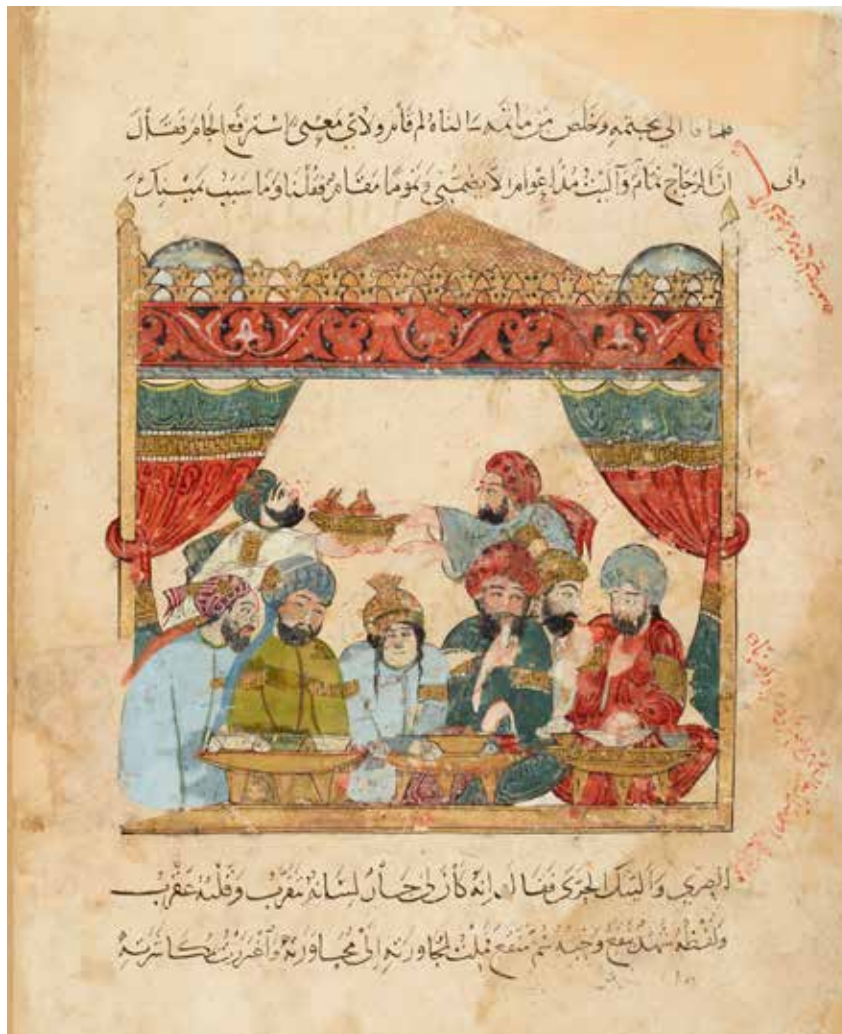 فلما فا الى مجثمه وخلص من ماثمه سالناه لم قام ولاي معنى استرفع الجام فقال
وانى
ان الزجاج نمام وآليت مذ اعوام الا يضمني ونموما مقام فقلنا وما سبب يمينك
الصري واليتك الحرى فقال انه كان لي جار لسانه يتقرب وقلبه عقرب
ولفظه شهد ينقع وخبه سم منقع فملت لمجاورته الى محاورته واغتررت بمكاشرته